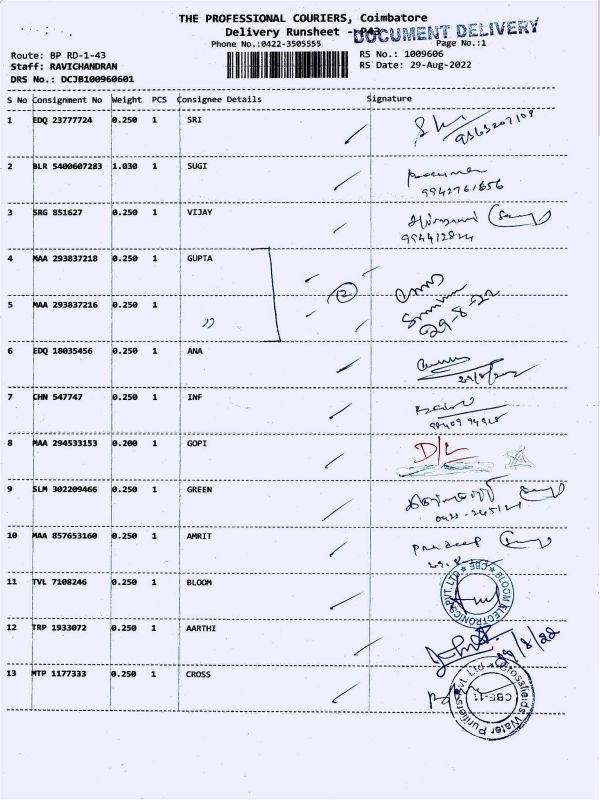 THE PROFESSIONAL COURIERS, Coimbatore
Delivery Runsheet - P43
DOCUMENT DELIVERY
Phone No.:0422-3505555 Page No.:1
Route: BP RD-1-43 RS No.: 1009606
Staff: RAVICHANDRAN RS Date: 29-Aug-2022
DRS No.: DCJB100960601
S No Consignment No Weight PCS Consignee Details Signature
1 EDQ 23777724 0.250 1 SRI
2 BLR 5400607283 1.030 1 SUGI
9942761656
3 SRG 851627 0.250 1 VIJAY
994412824
4 MAA 293837218 0.250 1 GUPTA
2
5 MAA 293837216 0.250 1 ,,
29-8-22
6 EDQ 18035456 0.250 1 ANA
7 CHN 547747 0.250 1 INF
8 MAA 294533153 0.200 1 GOPI D/L
9 SLM 302209466 0.250 1 GREEN
10 MAA 857653160 0.250 1 AMRIT Pradeep
11 TVL 7108246 0.250 1 BLOOM
BLOOM ELECTRONICS PVT.LTD CBE
12 TRP 1933072 0.250 1 AARTHI 29/8/22
13 MTP 1177333 0.250 1 CROSS
Crossfields Water Purifiers Pvt. Ltd
CBE-11